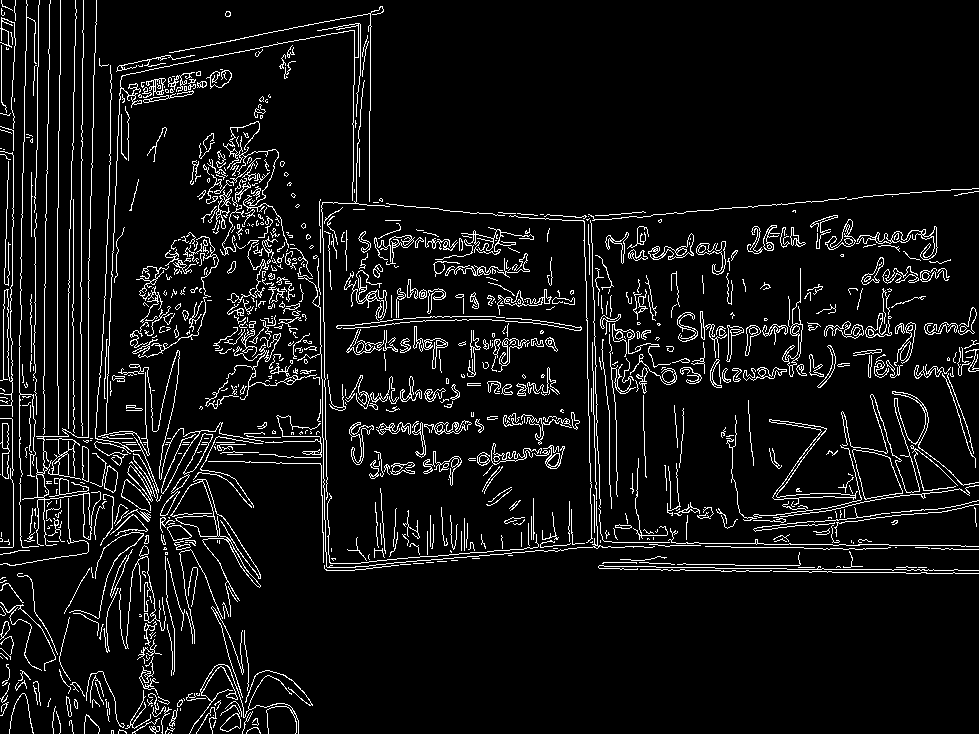 Supermarket
market
toy shop - z zabawkami
bookshop - księgarnia
butcher's - rzeźnik
greengrocer's - warzywniak
shoe shop - obuwniczy
Tuesday, 26th February
Lesson
Topic: Shopping - reading and
03 (czwartek) - Test unit
ZAR